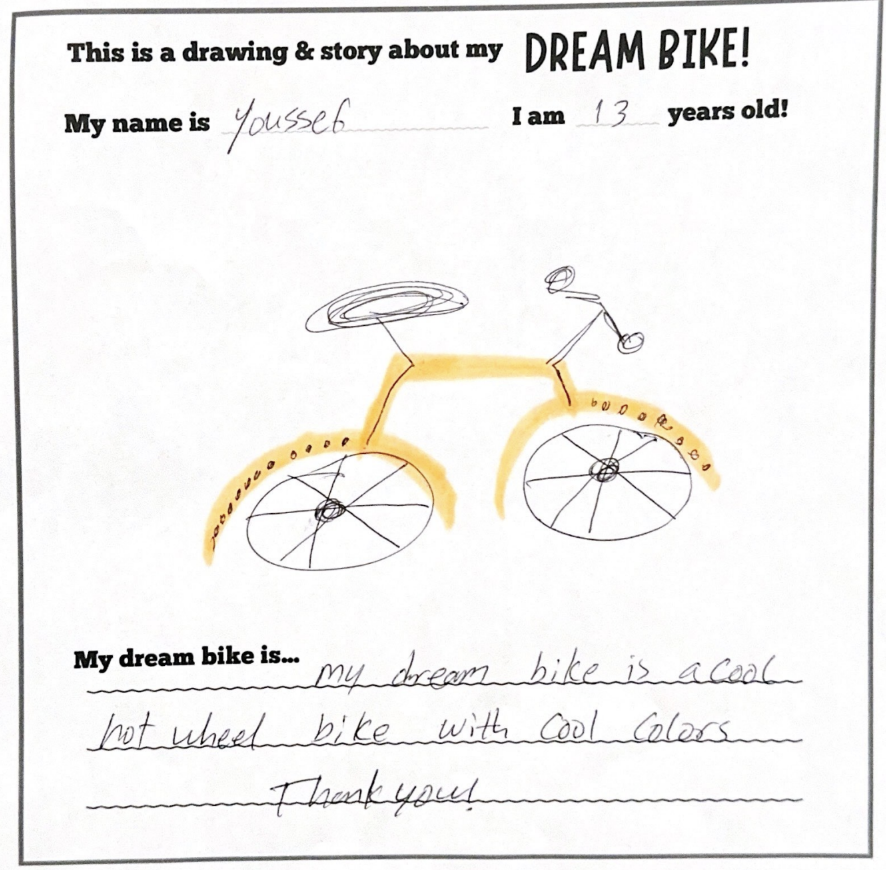 This is a drawing & story about my DREAM BIKE!
My name is Youssef I am 13 years old!
My dream bike is... my dream bike is a cool
hot wheel bike with cool colors
Thank you!